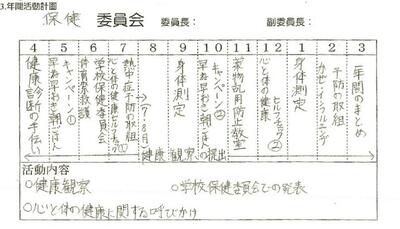 3.年間活動計画
保健 委員会 委員長: 副委員長:
4 5 6 7 8 9 10 11 12 1 2 3
健康診断の手伝い
キャンペーン①
早ね早おき朝ごはん
体育祭救護
学校保健委員会
心と体の健康セルフチェック①
熱中症予防の取組
(7・8月)
身体測定
早ね早おき朝ごはん
キャンペーン②
薬物乱用防止教室
心と体の健康
セルフチェック②
身体測定
かぜ・インフルエンザ
予防の取組
一年間のまとめ
健康観察の提出
活動内容
○健康観察 ○学校保健委員会での発表
○心と体の健康に関する呼びかけ